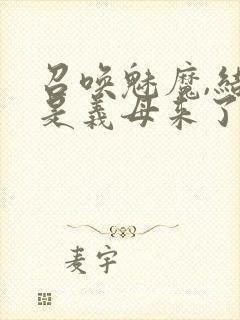 召唤魅魔,结
是义母来了
麦宇